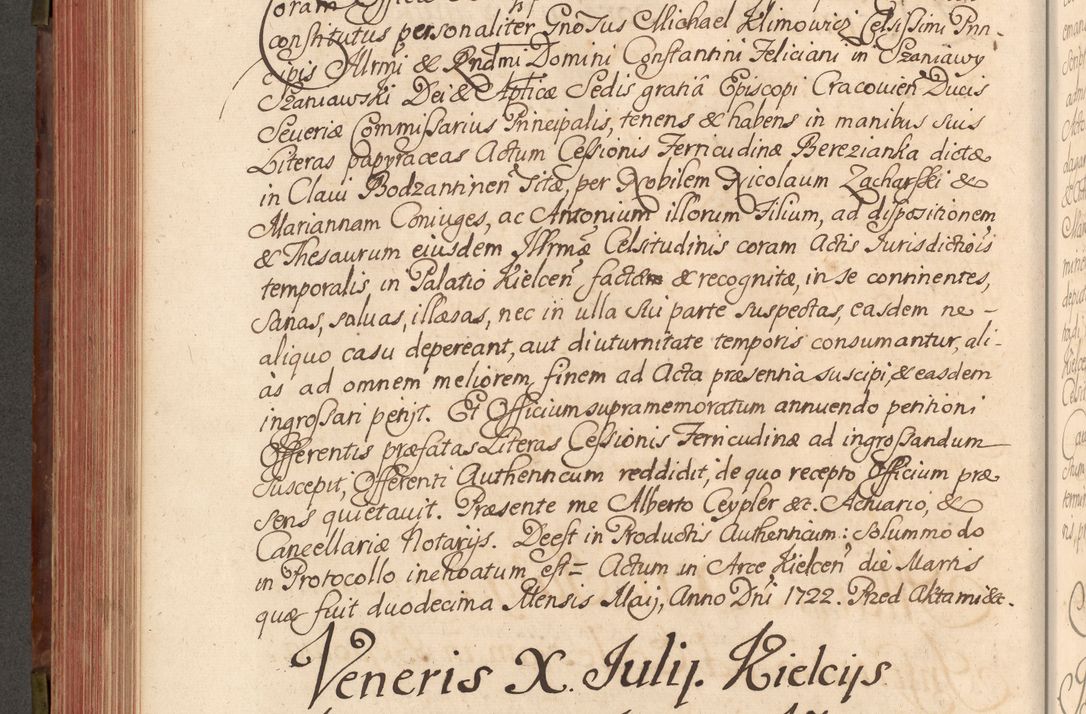 Constitutus personaliter Gnosus Michael Klimowicz Celsissimi Prin-
cipis Illrmi & Rndmi Domini Constantini Feliciani in Szaniawy
Szaniawski Dei & Apticæ Sedis gratiâ Episcopi Cracovień Ducis
Severiæ Commissarius Principalis, tenens & habens in manibus suis
Literas papyraceas Actum Cessionis Ferricudinæ Berezianka dictæ
in Clavi Bodzantinen Sitæ, per Nobilem Nicolaum Zacharski &
Mariannam Coniuges, ac Antonium illorum Filium, ad dispositionem
& Thesaurum eiusdem Illrmæ Celsitudinis coram Actis Jurisdictiois
temporalis in Palatio Kielcen factam & recognitæ, in se continentes,
Sanas, salvas, illæsas, nec in ulla sui parte suspectas, easdem ne-
aliquo casu depereant, aut diuturnitate temporis consumantur, ali-
às ad omnem meliorem finem ad Acta præsentia suscipi, & easdem
ingrossari petijt. Et Officium supramemoratum annuendo petitioni
Offerentis præfatas Literas Cessionis Ferricudinæ ad ingrossandum
suscepit, Offerenti Authenticum reddidit, de quo recepto Officium præ
sens quietavit. Præsente me Alberto Ceypler &c. Actuario, &
Cancellariæ Notarijs. Deest in Productis Authenticum: Solummodo
in Protocollo inchoatum est= Actum in Arce Kielcen die Martis
quæ fuit duodecima Mensis Maij, Anno Dni 1722. Przed Aktami &c.
Veneris X. Julij. Kielcijs